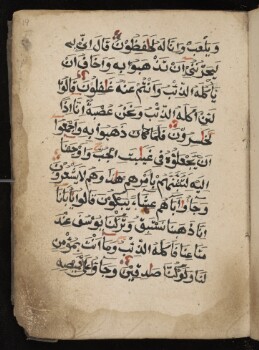 ويلعب وانا له لحفظون قال اني ليـ
يحزنني ان تذهبوا به واخاف ان
ياكله الذئب وانتم عنه غفلون قالوا
لئن اكله الذئب ونحن عصبة انا اذا
لخسرون فلما ذهبوا به واجمعوا
ان يجعلوه في غيبت الجب واوحينا
اليه لتنبئنهم بامرهم هذا وهم لا يشعرون
وجاوا اباهم عشاء يبكون قالوا يابانا
انا ذهبنا نستبق وتركنا يوسف عند
متاعنا فاكله الذئب وما انت بمؤمن
لنا ولو كنا صدقين وجاوا على قميصه